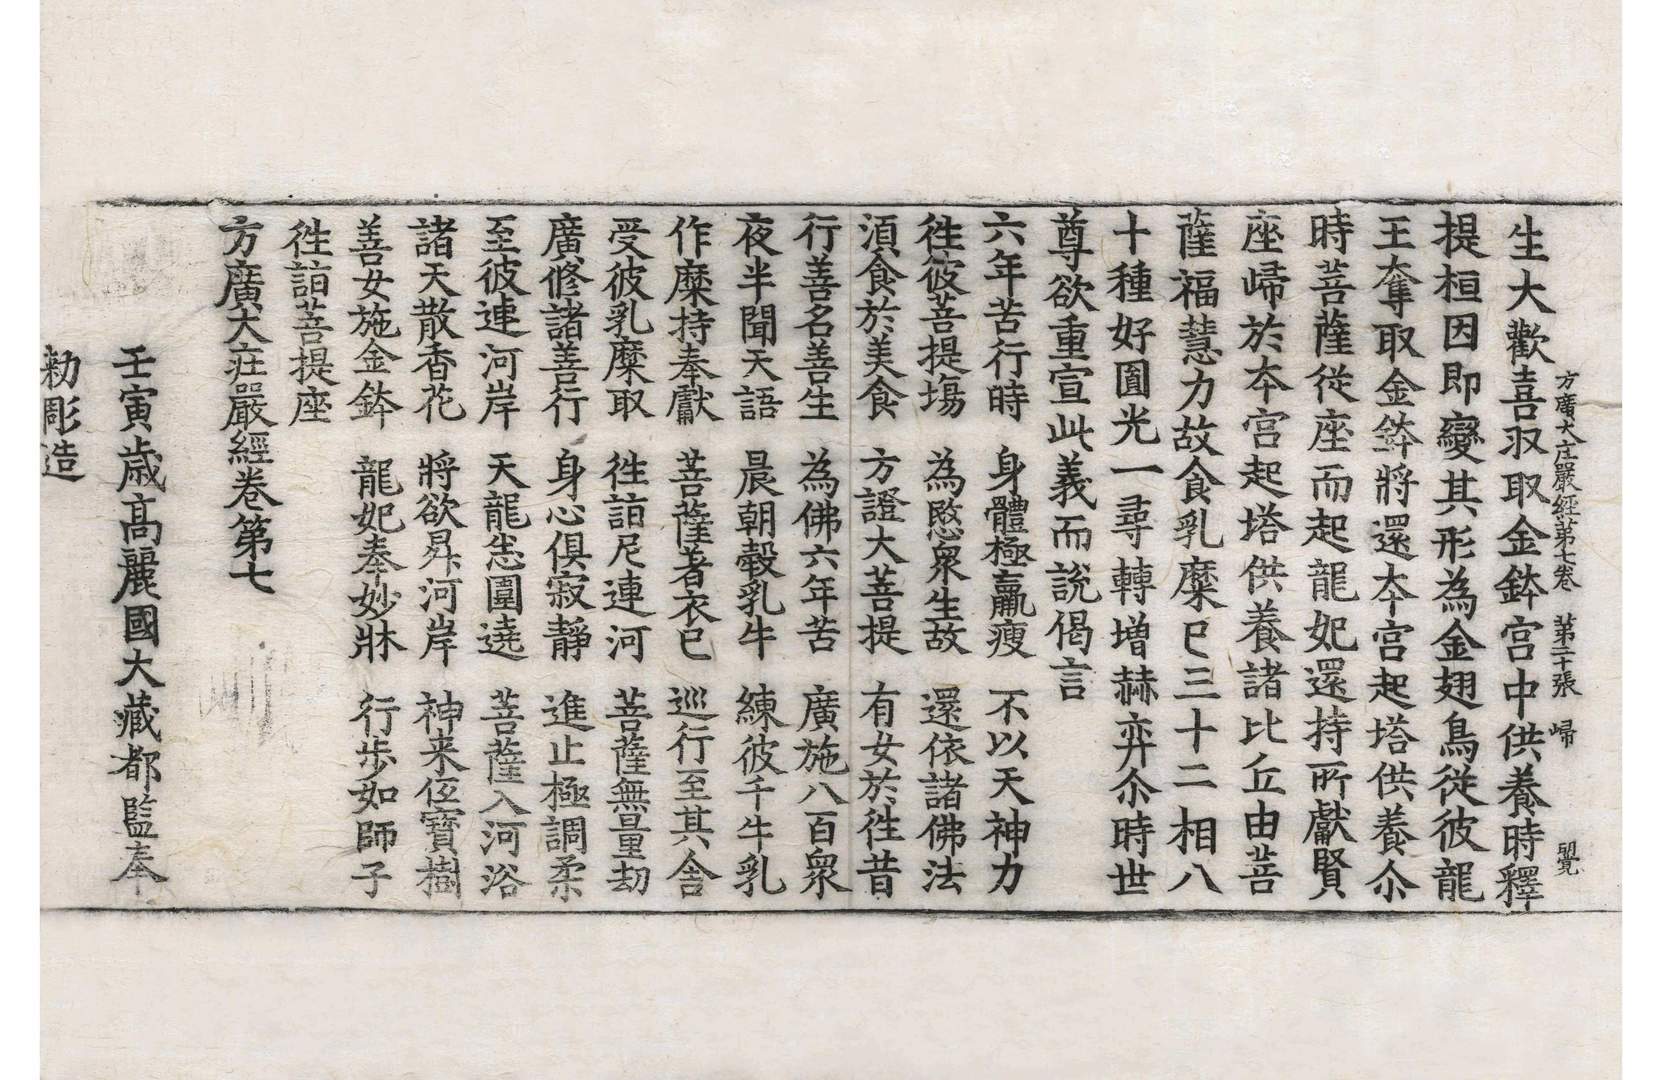 方廣大庄嚴經第七卷 第二十張 㷌 覺
生大歡喜収取金鉢宫中供養時釋
提桓因即變其形為金翅鳥從彼龍
王奪取金鉢將還夲宫起塔供養尒
時菩薩從座而起龍妃還持所獻賢
座㷌於夲宫起塔供養諸比丘由菩
薩福慧力故食乳糜已三十二相八
十種好圎光一尋轉増赫弈尒時世
尊欲重宣此義而說偈言
六年苦行時 身體極羸瘦 不以天神力
徃彼菩提場 為愍衆生故 還依諸佛法
湏食於美食 方證大菩提 有女於徃昔
行善名善生 為佛六年苦 廣施八百衆
夜半聞天語 晨朝𣫭乳牛 練彼千牛乳
作糜持奉獻 菩薩著衣已 巡行至其舎
受彼乳糜取 徃詣尼連河 菩薩無量劫
廣修諸善行 身心俱寂靜 進止極調柔
至彼連河岸 天龍㤀圍遶 菩薩入河浴
諸天散香花 將欲昇河岸 神来伍寶樹
善女施金鉢 龍妃奉妙牀 行步如師子
徃詣菩提座
方廣大莊嚴經卷第七
壬寅歲高麗國大藏都監奉
勑彫造